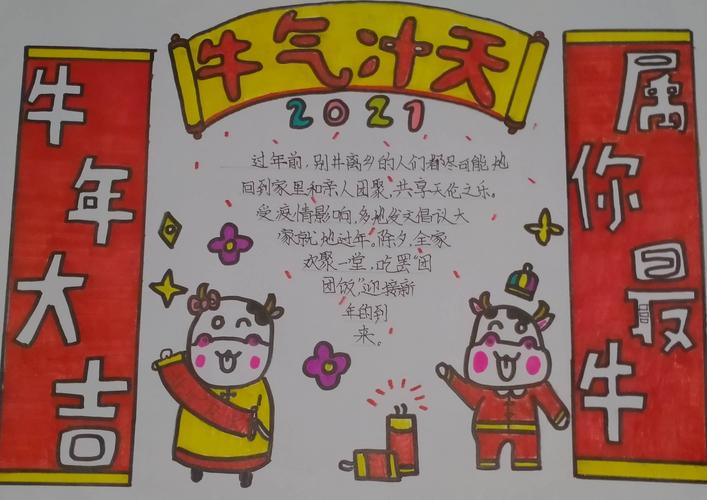 牛气冲天
2021
牛年大吉
属你最牛
过年前，别井离乡的人们都尽可能地
回到家里和亲人团聚，共享天伦之乐。
受疫情影响，多地发文倡议大
家就地过年。除夕，全家
欢聚一堂，吃罢“团
团饭”，迎接新
年的到
来。